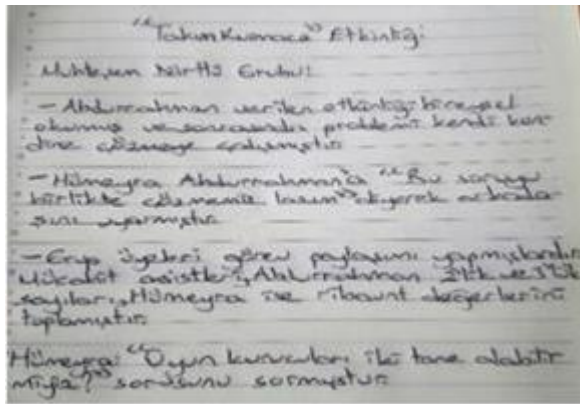 "Takım Kurmaca" Etkinliği
Grubu:
- Abdurrahman verilen etkinliği bireysel
okumuş ve sonrasında problemi kendi ken-
dine çözmeye çalışmıştır.
- Hümeyra Abdurrahman'a "Bu soruyu
birlikte çözmemiz lazım" diyerek arkada-
şını uyarmıştır.
- Grup üyeleri görev paylaşımı yapmışlardır.
Mücahit asistleri, Abdurrahman 2'lik ve 3'lük
sayıları, Hümeyra ise ribaunt değerlerini
toplamıştır.
Hümeyra: "Oyun kurucuları iki tane alabilir
miyiz?" sorusunu sormuştur.